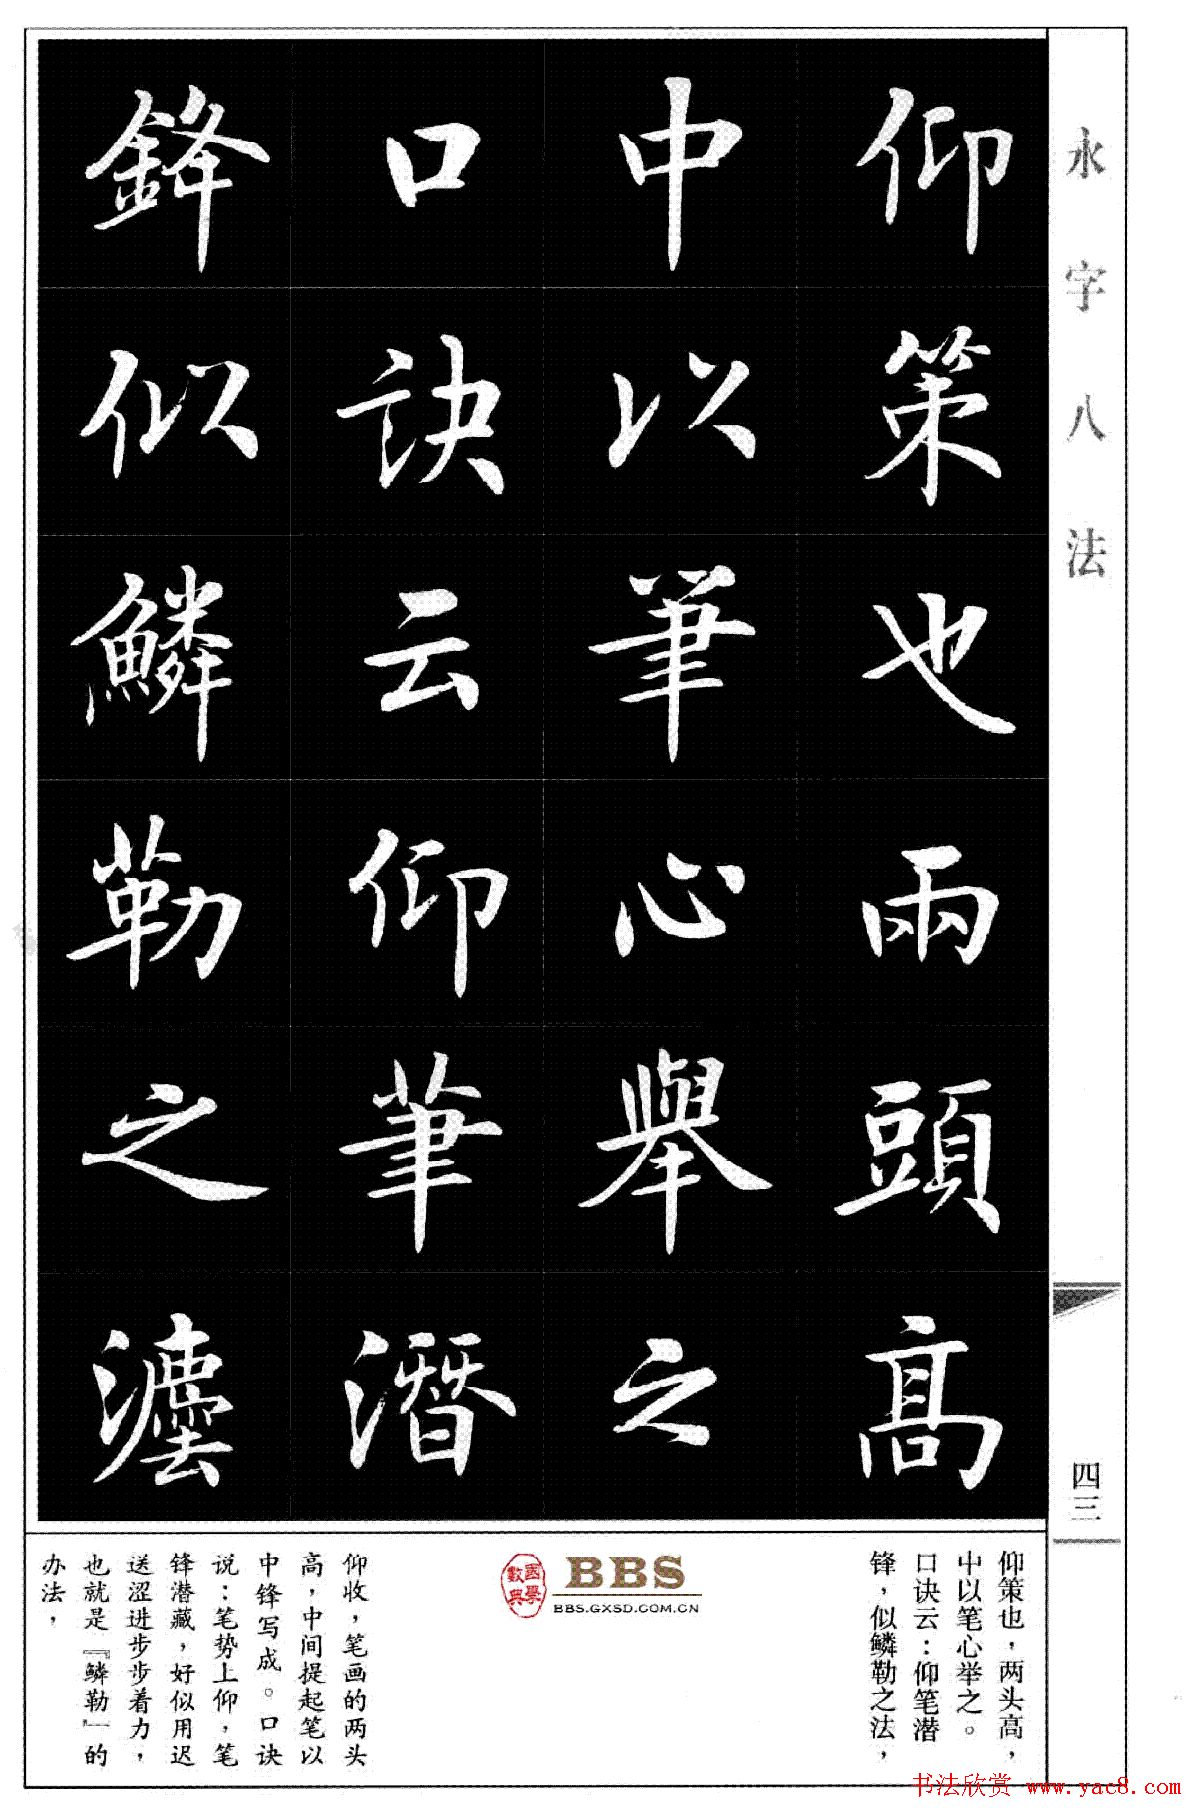 永字八法
四三
仰策也兩頭高
中以筆心舉之
口訣云仰筆潛
鋒似鱗勒之灋
仰策也，两头高，
中以笔心举之。
口诀云：仰笔潜
锋，似鳞勒之法，
國學
數典
BBS
BBS.GXSD.COM.CN
仰收，笔画的两头
高，中间提起笔以
中锋写成。口诀
说：笔势上仰，笔
锋潜藏，好似用迟
送涩进步步着力，
也就是『鳞勒』的
办法，
书法欣赏 www.yac8.com